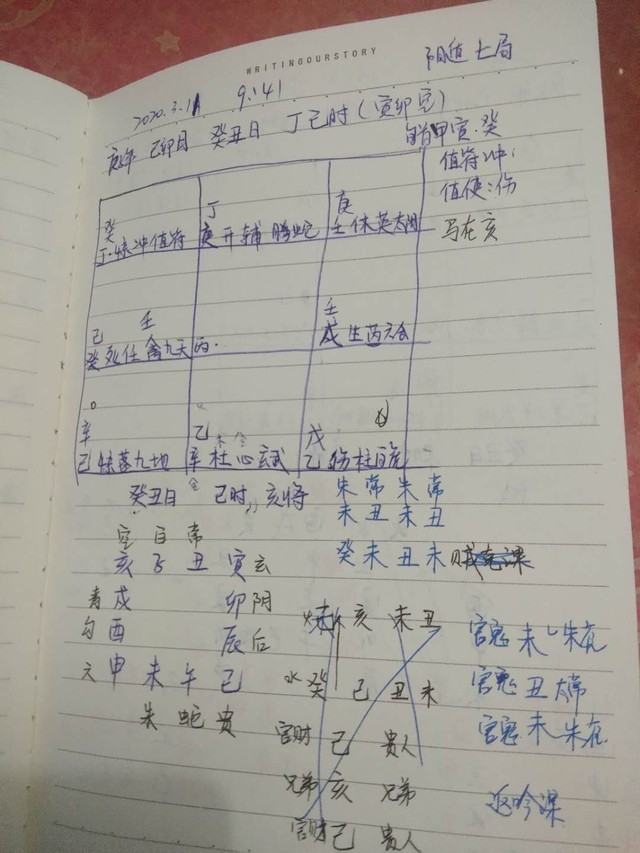 WRITINGOURSTORY
阳遁七局
2020.3.11 9:41
庚年 己卯月 癸丑日 丁巳时(寅卯空)
旬首甲寅.癸
值符:冲.
值使:伤
马在亥
癸 丁 庚
丁.惊冲值符 庚开辅腾蛇 壬休英太阴
己 壬 壬
癸死任禽九天丙. 戊生芮六合
辛 己 戊
己惊蓬九地 辛杜心玄武 乙伤柱白虎
癸丑日 巳时, 亥将
朱常朱常
未丑未丑
癸未丑未
空白常
亥子丑寅玄
青戌 卯阴
勾酉 辰后
六申未午巳
朱蛇贵
亥未丑
水癸 巳丑未
官财 巳 贵人
兄弟 亥 兄弟
官财 巳 贵人
官鬼 未 朱雀
官鬼 丑 太常
官鬼 未 朱雀
返吟课